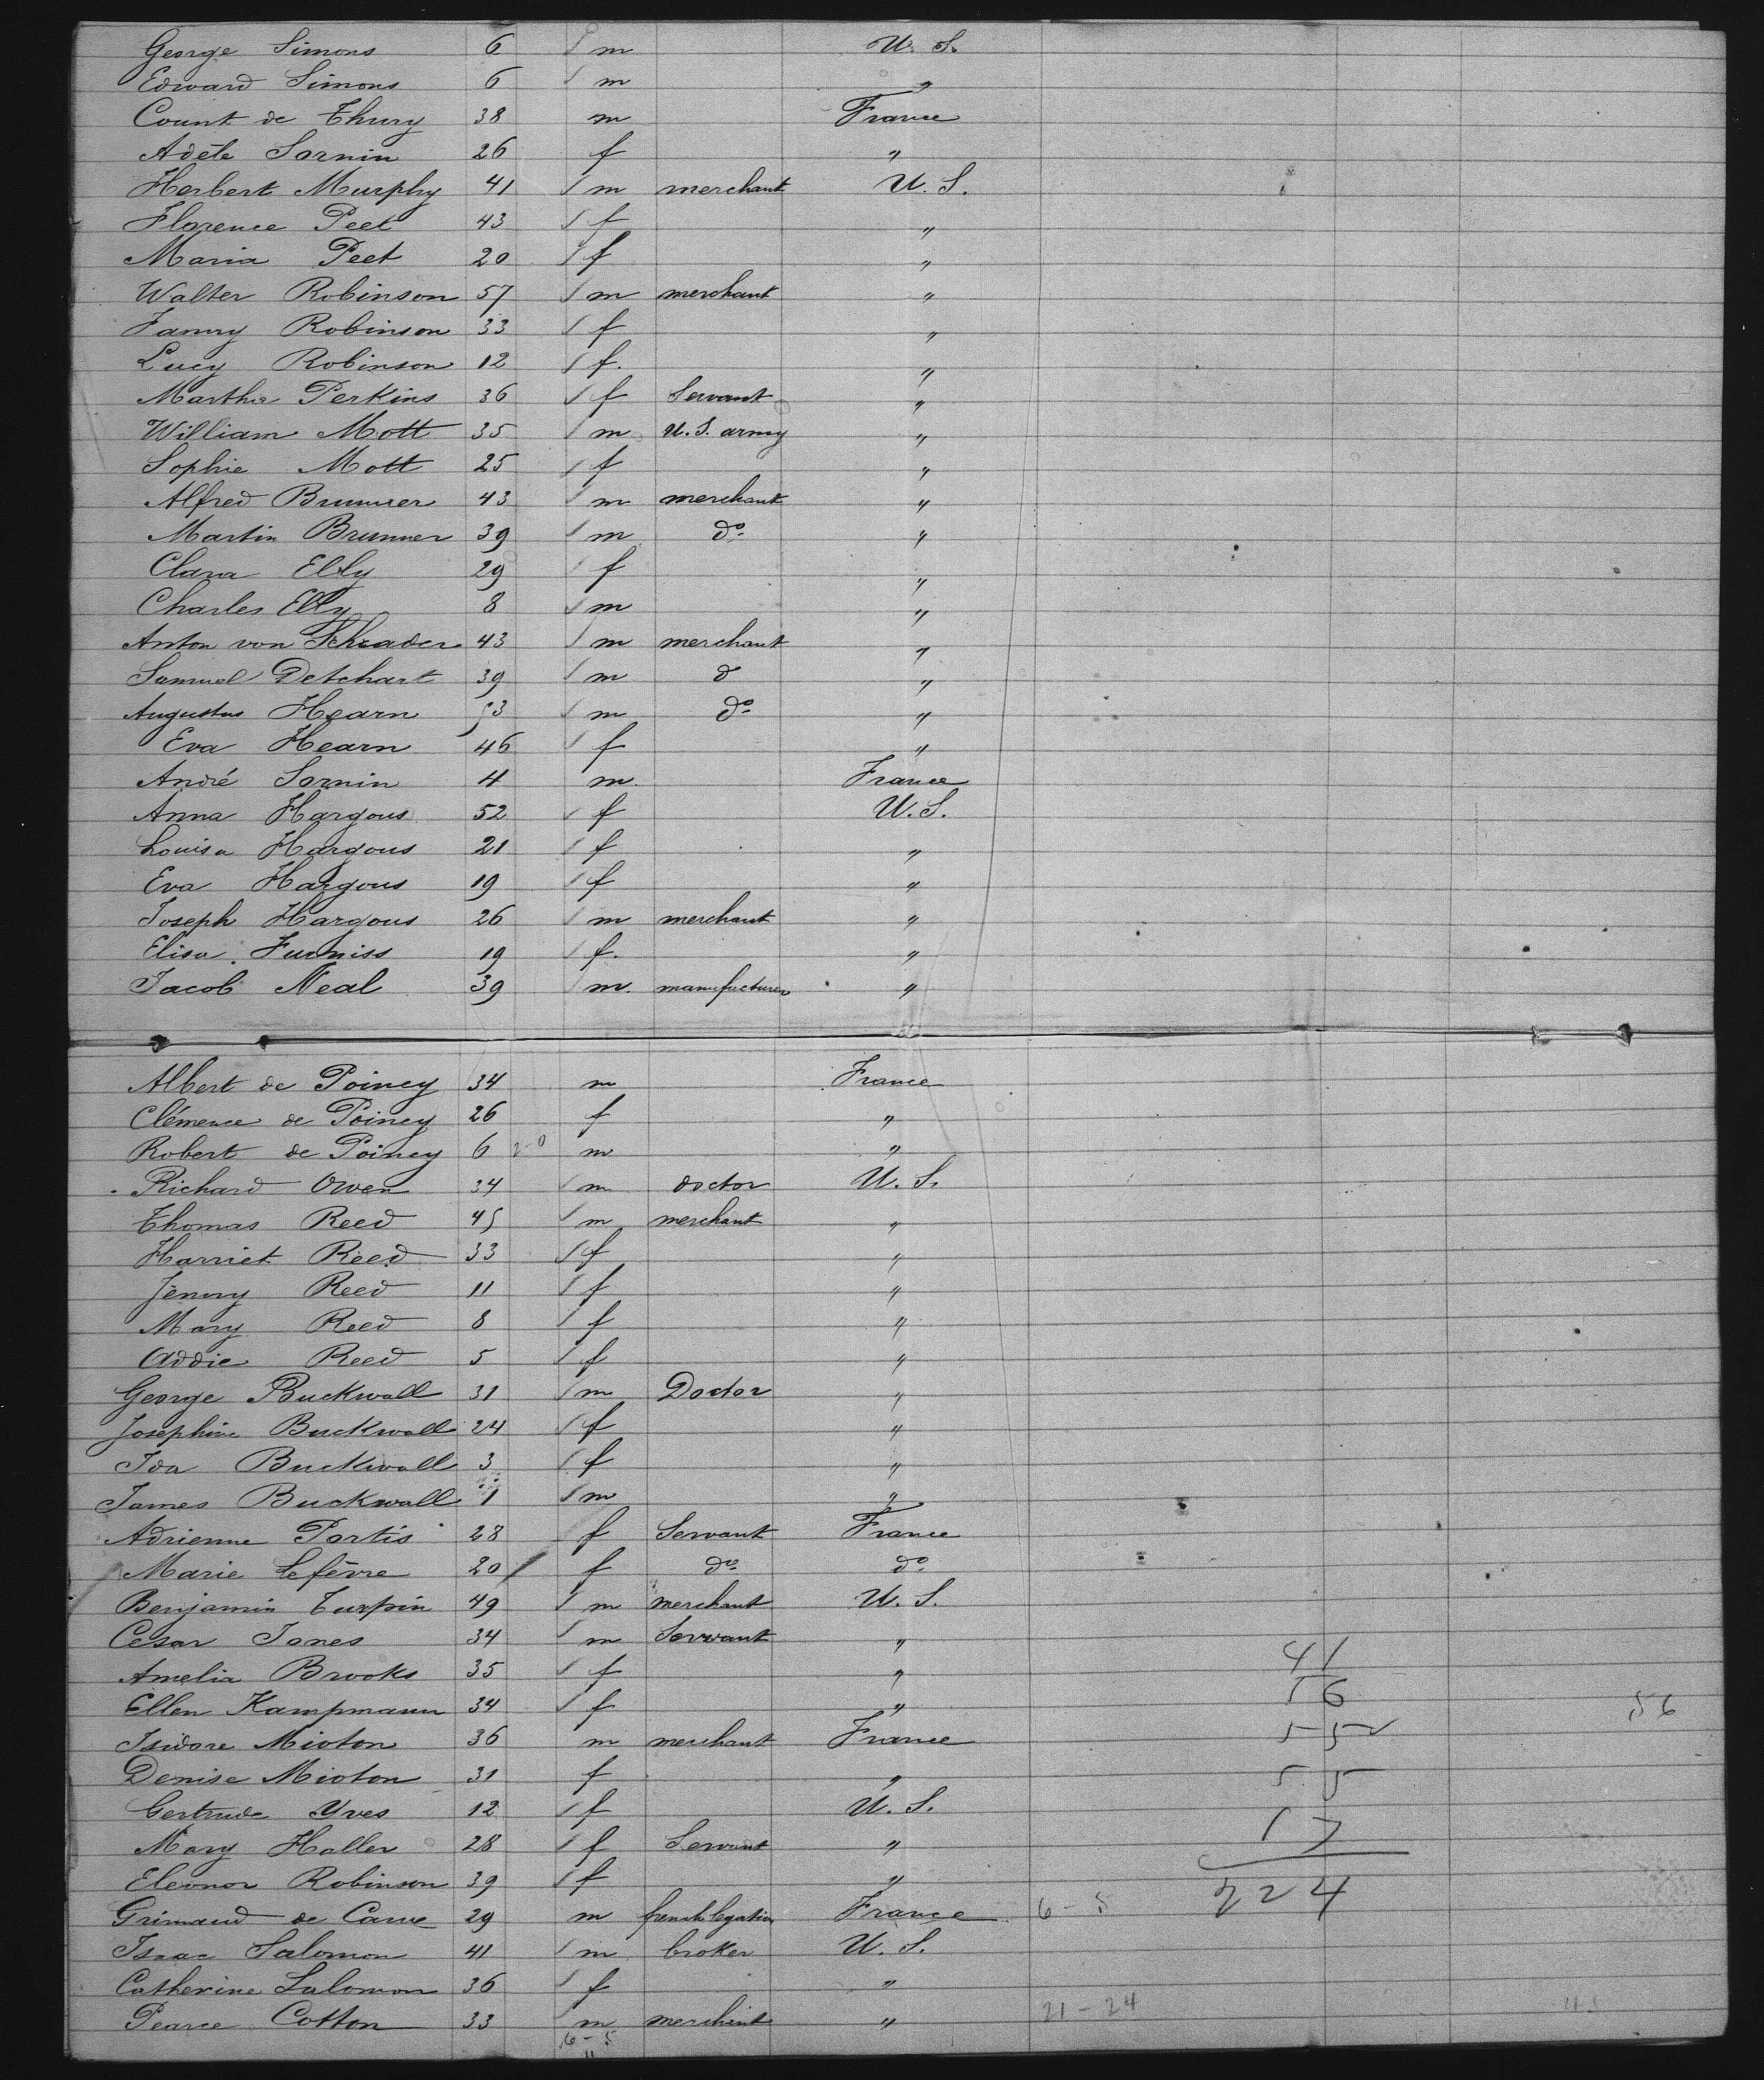 George Simons 6 m U. S.
Edward Simons 6 m "
Count de Thury 38 m France
Adèle Sornin 26 f "
Herbert Murphy 41 m merchant U. S.
Florence Peet 43 f "
Maria Peet 20 f "
Walter Robinson 57 m merchant "
Fanny Robinson 33 f "
Lucy Robinson 12 f. "
Martha Perkins 36 f Servant "
William Mott 35 m U. S. army "
Sophie Mott 25 f "
Alfred Brunner 43 m merchant "
Martin Brunner 39 m do "
Clara Elly 29 f "
Charles Elly 8 m "
Anton von Schrader 43 m merchant "
Samuel Detchart 39 m d "
Augustus Hearn 53 m do "
Eva Hearn 46 f "
André Sornin 4 m. France
Anna Hargous 52 f U. S.
Louisa Hargous 21 f "
Eva Hargous 19 f "
Joseph Hargous 26 m merchant "
Elisa Furniss 19 f. "
Jacob Neal 39 m. manufacturer "
Albert de Poincy 34 m France
Clémence de Poincy 26 f "
Robert de Poincy 6 m "
Richard Owen 34 m doctor U. S.
Thomas Reed 45 m merchant "
Harriet Reed 33 f "
Jenny Reed 11 f "
Mary Reed 8 f "
Addie Reed 5 f "
George Buckwall 31 m Doctor "
Josephine Buckwall 24 f "
Ida Buckwall 3 f "
James Buckwall 1 m "
Adrienne Portis 28 f Servant France
Marie Lefèvre 20 f do do
Benjamin Turpin 49 m merchant U. S.
Cesar Jones 34 m Servant "
41
Amelia Brooks 35 f "
56
Ellen Kampmann 34 f "
56
Isidore Mioton 36 m merchant France
55
Denise Mioton 31 f "
55
Gertrude Yves 12 f U. S.
17
Mary Haller 28 f Servant "
Eleonor Robinson 39 f "
224
Grimaud de Caux 29 m french legation France 6-5
Isaac Salomon 41 m broker U. S.
Catherine Salomon 36 f "
Pearce Cotton 33 m merchant " 21-24
6-5
11